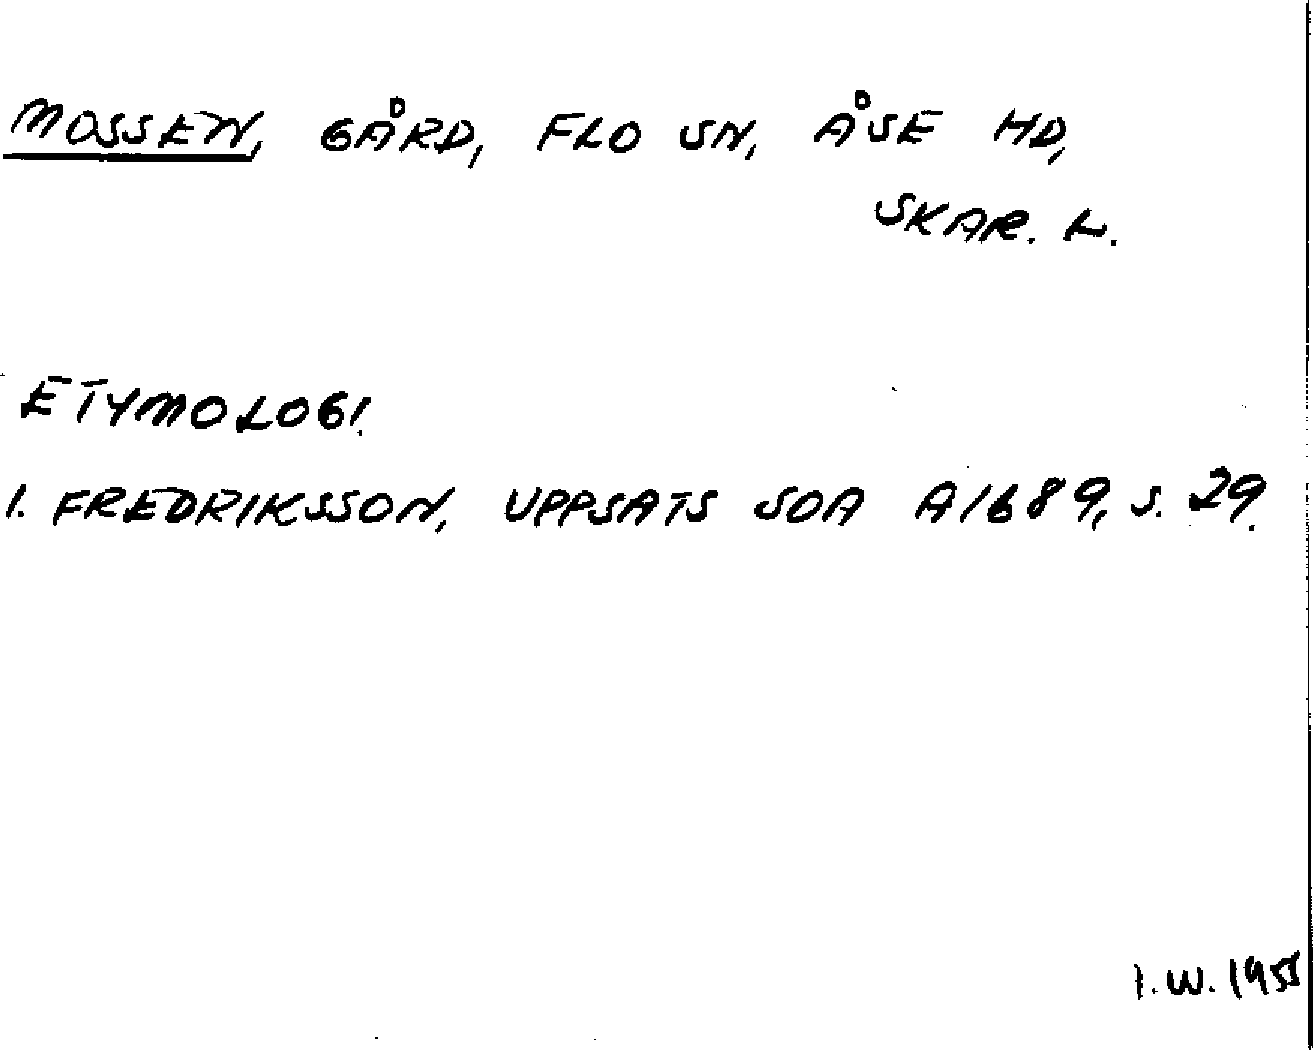 MOSSEN, GÅRD, FLO SN, ÅSE HD,
SKAR. L.
ETYMOLOGI.
I. FREDRIKSSON, UPPSATS SOA A1689, S. 29.
I.W. 1955